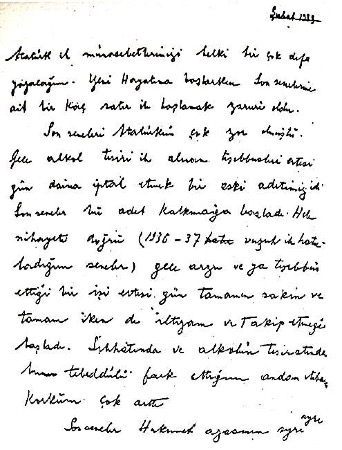 Şubat 1939
Atatürk ile münasebetlerimizi belki bir çok defa
yazacağım. Yeni Hayatıma başlarken Son senelerine
ait bir kaç satır ile başlamak zaruri oldu.
Son seneleri Atatürkün çok zor olmuştu.
Gece alkol tesiri ile alınan teşebbüsleri ertesi
gün daima iptal etmek bir eski adetimiz idi
Son seneler bu adet Kalkmağa başladı. Hele
nihayete doğru (1936-37 vuzuh ile hatır-
ladığım seneler) gece arzu ve ya teşebbüs
ettiği bir işi ertesi gün tamamen sakin ve
tamam iken de iltizam ve Takip etmeğe
başladı. Sıhhatında ve alkolün tesiratında
tebeddülü fark ettiğim andan itibaren
Korkum çok arttı
Son seneler Hükumet azasının ayrı ayrı